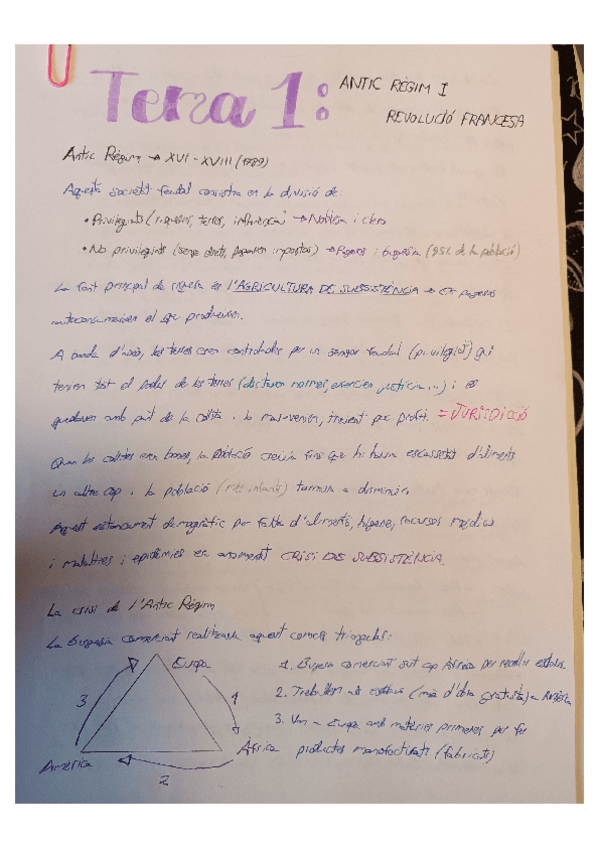 Tema 1: ANTIC RÈGIM I
REVOLUCIÓ FRANCESA
Antic Règim → XVI - XVIII (1789)
Aquesta societat feudal consistia en la divisió de:
• Privilegiats (riqueses, terres, influència) → Noblesa i clero
• No privilegiats (sense drets, pagaven impostos) → Pagesos i burgesia (95% de la població)
La font principal de riquesa és l'AGRICULTURA DE SUBSISTÈNCIA → Els pagesos
autoconsumeixen el que produeixen.
A banda d'això, les terres eren controlades per un senyor feudal (privilegiat) qui
tenien tot el poder de les terres (dictaven normes, exercien justícia...) i es
quedaven amb part de la collita i la revenien, traient profit. = JURISDICCIÓ
Quan les collites eren bones, la població creixia fins que hi havia escassetat d'aliments
un altre cop i la població (més infants) tornava a disminuir.
Aquest estancament demogràfic per falta d'aliments, higiene, recursos mèdics
i malalties i epidèmies es anomenat CRISI DE SUBSISTÈNCIA.
La crisi de l'Antic Règim
La burgesia comerciant realitzava aquest comerç triangular:
Europa
1
Àfrica
2
Amèrica
3
1. Burgesia comerciant surt cap Àfrica per recollir esclaus.
2. Treballen els esclaus (mà d'obra gratuïta) a Amèrica
3. Van a Europa amb matèries primeres per fer
productes manofacturats (fabricats)